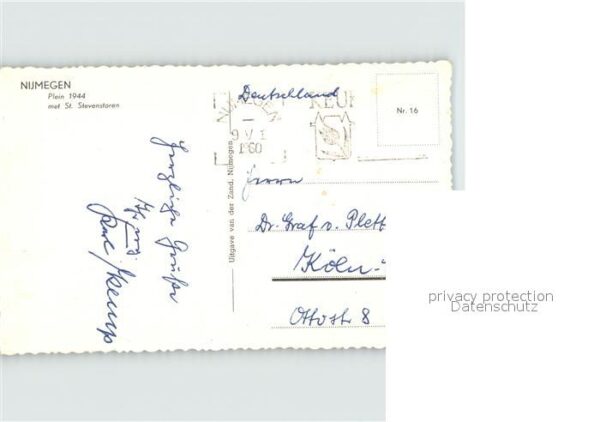 NIJMEGEN
Plein 1944
met St. Stevenstoren
Deutschland
KEUR
9 VI
1960
Nr. 16
Uitgave van der Zand, Nijmegen
Herzliche Grüße
Herrn
Dr. Graf v. Plett
Köln-
Ottostr 8
privacy protection
Datenschutz